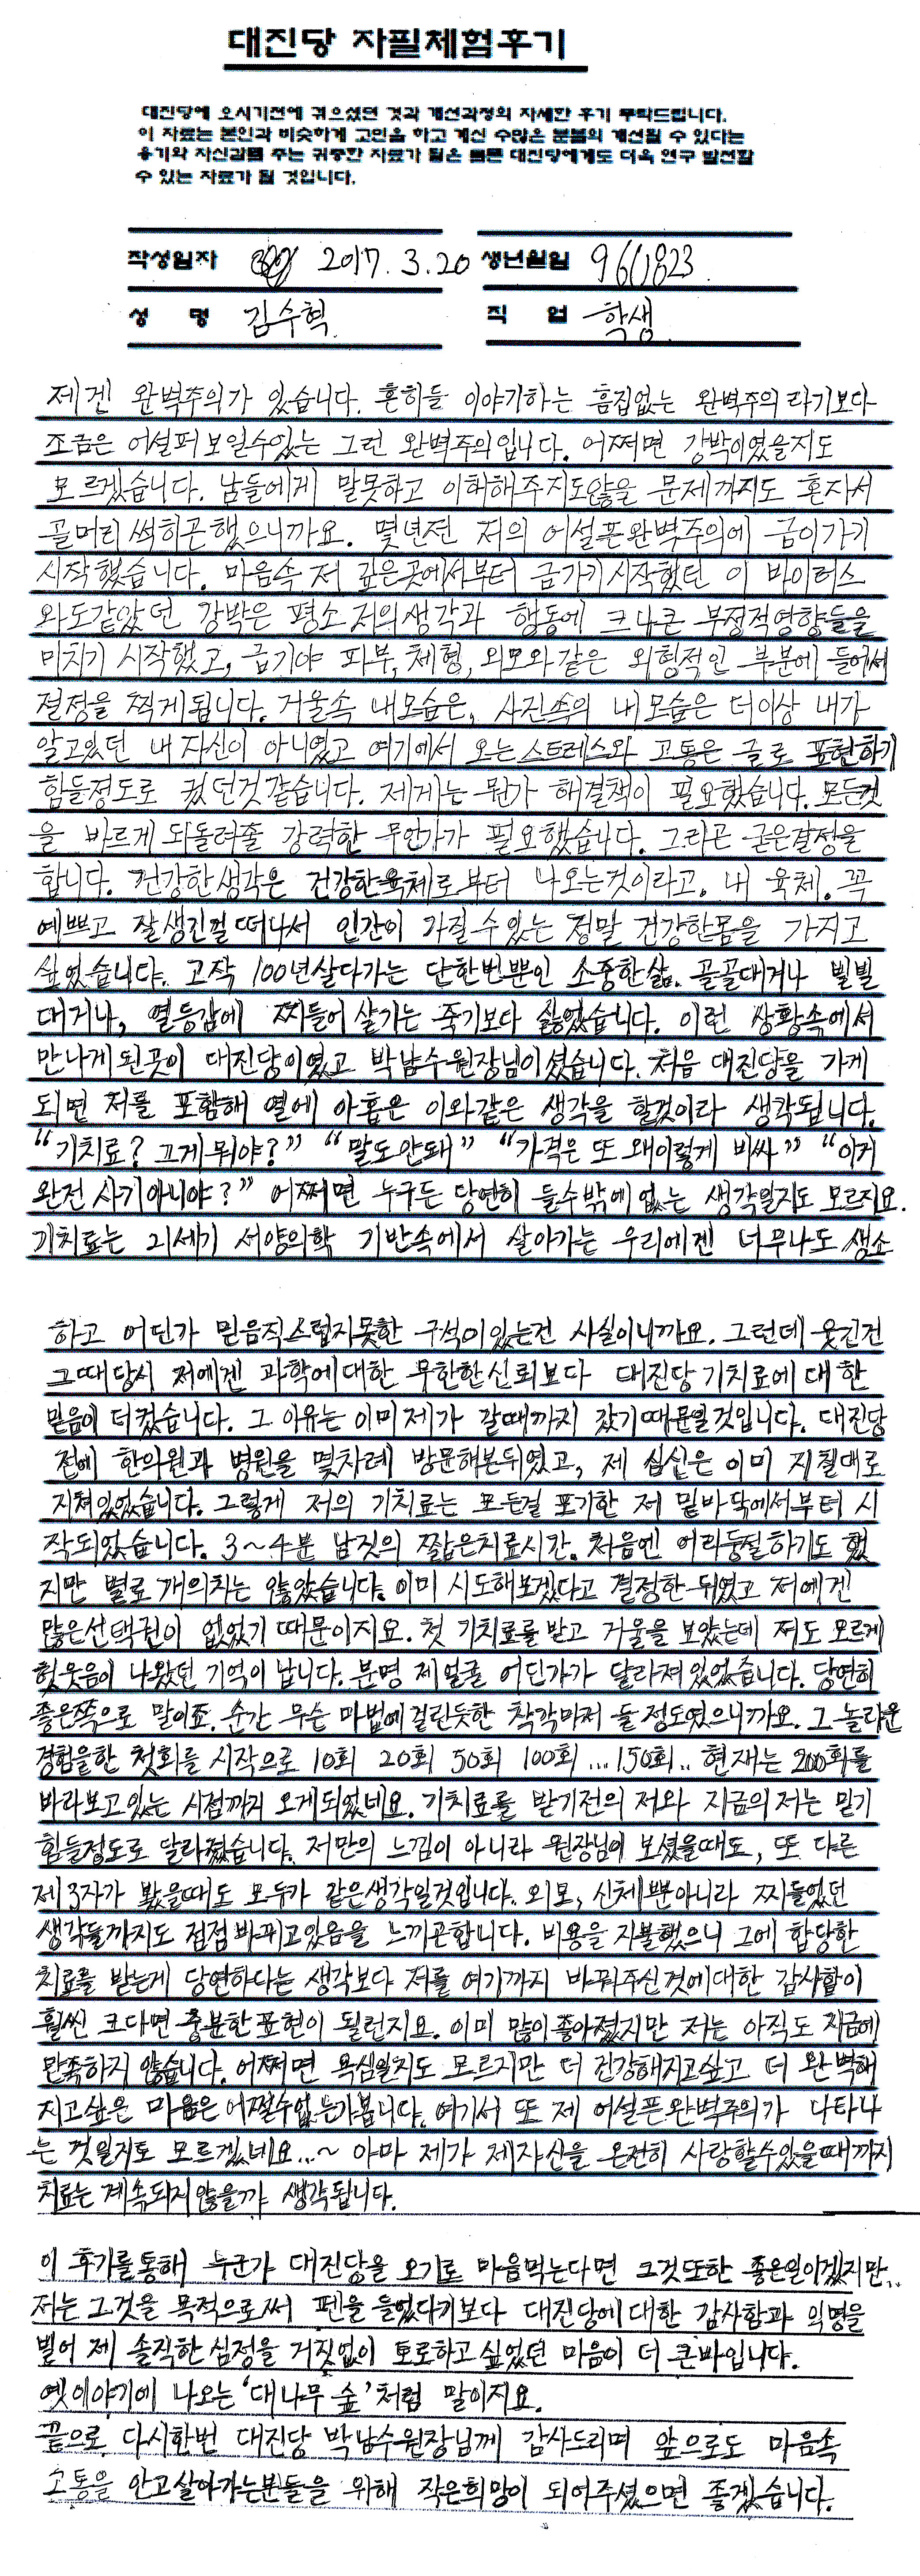 대진당 자필체험후기
대진당에 오시기전에 겪으셨던 것과 개선과정의 자세한 후기 부탁드립니다.
이 자료는 본인과 비슷하게 고민을 하고 계신 수많은 분들의 개선될 수 있다는
용기와 자신감을 주는 귀중한 자료가 될은 물론 대진당에게도 더욱 연구 발전할
수 있는 자료가 될 것입니다.
작성일자 2017. 3. 20 생년월일 960823
성 명 김수혁 직 업 학생
제겐 완벽주의가 있습니다. 흔히들 이야기하는 흠집없는 완벽주의 라기보다
조금은 어설퍼 보일수있는 그런 완벽주의입니다. 어쩌면 강박이였을지도
모르겠습니다. 남들에게 말못하고 이해해주지도않을 문제까지도 혼자서
골머리 썩히곤했으니까요. 몇년전 저의 어설픈완벽주의에 금이가기
시작했습니다. 마음속 저 깊은곳에서부터 금가기시작했던 이 바이러스
와도같았던 강박은 평소 저의생각과 행동에 크나큰 부정적영향들을
미치기 시작했고, 급기야 피부, 체형, 외모와 같은 외형적인 부분에 들어서
절정을 찍게됩니다. 거울속 내모습은, 사진속의 내모습은 더이상 내가
알고있던 내 자신이 아니였고 여기에서 오는 스트레스와 고통은 글로 표현하기
힘들정도로 컸던것같습니다. 제게는 뭔가 해결책이 필요했습니다. 모든것
을 바르게 되돌려줄 강력한 무언가가 필요했습니다. 그리곤 굳은결정을
합니다. 건강한생각은 건강한육체로부터 나오는것이라고. 내 육체. 꼭
예쁘고 잘생긴걸 떠나서 인간이 가질수있는 정말 건강한몸을 가지고
싶었습니다. 고작 100년살다가는 단한번뿐인 소중한삶. 골골대거나 빌빌
대거나, 열등감에 찌들어 살기는 죽기보다 싫었습니다. 이런 상황속에서
만나게 된곳이 대진당이였고 박남수원장님이셨습니다. 처음 대진당을 가게
되면 저를 포함해 열에 아홉은 이와같은 생각을 할것이라 생각됩니다.
“기치료? 그게뭐야?” “말도안돼” “가격은 또 왜이렇게 비싸” “이거
완전 사기아니야?” 어쩌면 누구든 당연히 들수밖에없는 생각일지도 모르지요.
기치료는 21세기 서양의학 기반속에서 살아가는 우리에겐 너무나도 생소
하고 어딘가 믿음직스럽지못한 구석이있는건 사실이니까요. 그런데 웃긴건
그때당시 저에겐 과학에대한 무한한신뢰보다 대진당기치료에 대한
믿음이 더컸습니다. 그 이유는 이미 제가 갈때까지 갔기때문일것입니다. 대진당
전에 한의원과 병원을 몇차례 방문해본뒤였고, 제 심신은 이미 지칠대로
지쳐있었습니다. 그렇게 저의 기치료는 모든걸 포기한 저 밑바닥에서부터 시
작되었습니다. 3~4분 남짓의 짧은치료시간. 처음엔 어리둥절하기도 했
지만 별로 개의치는 않았습니다. 이미 시도해보겠다고 결정한 뒤였고 저에겐
많은선택권이 없었기 때문이지요. 첫 기치료를받고 거울을 보았는데 저도 모르게
헛웃음이 나왔던 기억이 납니다. 분명 제얼굴 어딘가가 달라져있었습니다. 당연히
좋은쪽으로 말이죠. 순간 무슨 마법에걸린듯한 착각마저 들정도였으니까요. 그 놀라운
경험을한 첫회를 시작으로 10회 20회 50회 100회 ... 150회.. 현재는 200회를
바라보고있는 시점까지 오게되었네요. 기치료를 받기전의 저와 지금의저는 믿기
힘들정도로 달라졌습니다. 저만의 느낌이 아니라 원장님이 보셨을때도, 또 다른
제3자가 봤을때도 모두가 같은생각일것입니다. 외모, 신체뿐아니라 찌들었던
생각들까지도 점점바뀌고있음을 느끼곤합니다. 비용을 지불했으니 그에 합당한
치료를 받는게 당연하다는 생각보다 저를 여기까지 바꿔주신것에대한 감사함이
훨씬 크다면 충분한표현이 될런지요. 이미 많이좋아졌지만 저는 아직도 지금에
만족하지 않습니다. 어쩌면 욕심일지도 모르지만 더 건강해지고싶고 더 완벽해
지고싶은 마음은 어쩔수없는가봅니다. 여기서 또 제 어설픈완벽주의가 나타나
는 것일지도 모르겠네요...~ 아마 제가 제자신을 온전히 사랑할수있을때까지
치료는 계속되지않을까 생각됩니다.
이 후기를통해 누군가 대진당을 오기로 마음먹는다면 그것또한 좋은일이겠지만..
저는 그것을 목적으로써 펜을 들었다기보다 대진당에대한 감사함과 익명을
빌어 제 솔직한심정을 거짓없이 토로하고싶었던 마음이 더 큰바입니다.
옛이야기에 나오는 ‘대나무 숲’처럼 말이지요.
끝으로 다시한번 대진당 박남수원장님께 감사드리며 앞으로도 마음속
고통을 안고살아가는분들을 위해 작은희망이 되어주셨으면 좋겠습니다.